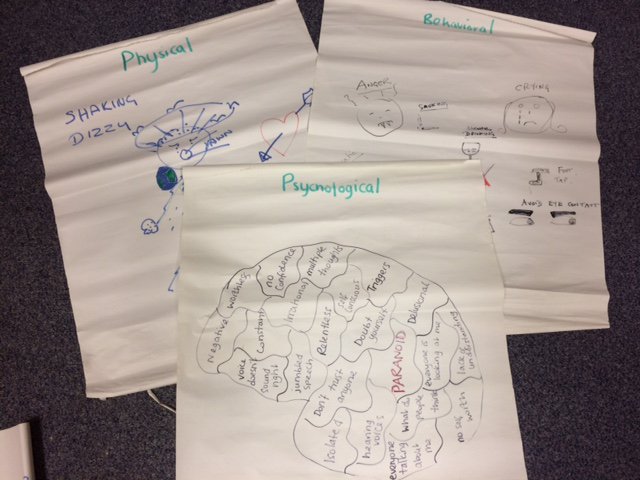 Physical
SHAKING
DIZZY
YAWN
Behavioral
ANGER
CRYING
FOOT
TAP
AVOID EYE CONTACT
Psycnological
Negative
worthless
no
confidence
multiple
thoughts
Triggers
Constant
Irrational
self
conscious
Relentless
Doubt
yourself
Delusional
voice
doesn't
sound
right
Jumbled
speech
Don't trust
anyone
PARANOID
everyone is
looking at me
lack of
understanding
Isolated
hearing
voices
what do
people
think
everyone
talking
about
me
no self
worth